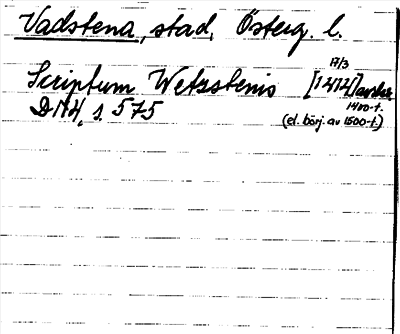 Vadstena, stad, Österg. l.
17/3
Scriptum Wetzstenis [1412] avskr.
1400-t.
DN4, s. 575 (el. börj. av 1500-t.)